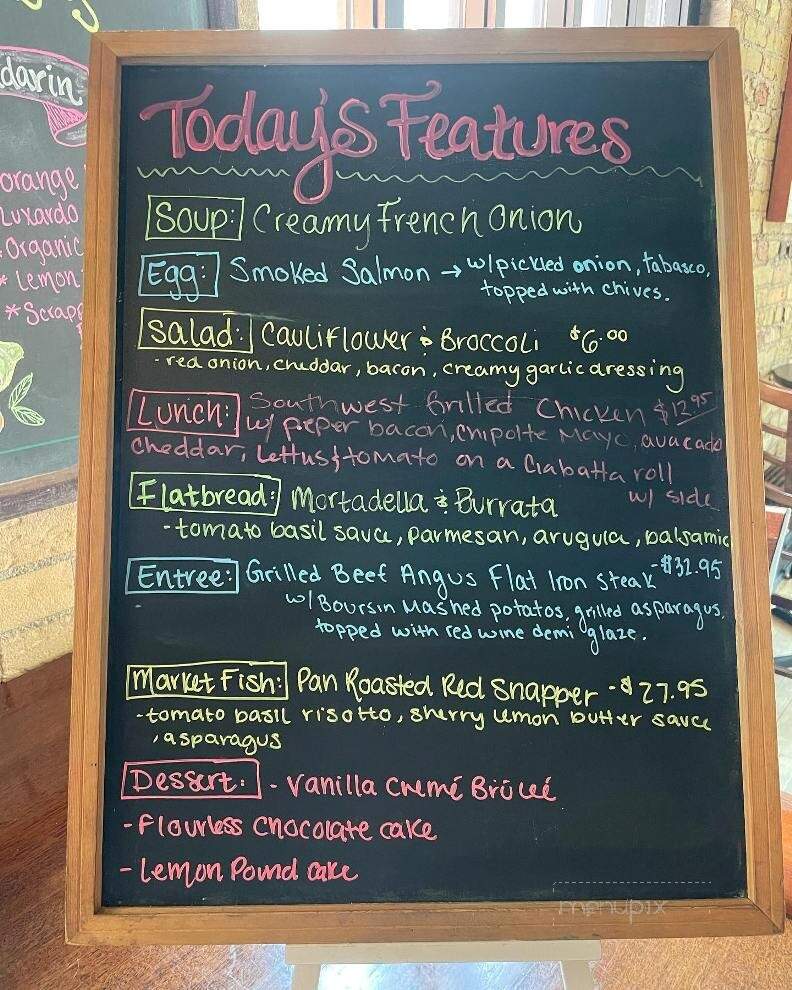 darin
orange
Luxardo
Organic
* Lemon
* Scrap
Today's Features
Soup: Creamy French Onion
Egg: Smoked Salmon → w/ pickled onion, tabasco,
topped with chives.
Salad: Cauliflower & Broccoli $6.00
- red onion, cheddar, bacon, creamy garlic dressing
Lunch: Southwest Grilled Chicken $12.95
w/ peper bacon, chipolte mayo, avacado
cheddar, lettus & tomato on a Ciabatta roll
w/ side
Flatbread: Mortadella & Burrata
- tomato basil sauce, parmesan, arugula, balsamic
Entree: Grilled Beef Angus Flat Iron Steak - $32.95
w/ Boursin Mashed potatos, grilled asparagus,
topped with red wine demi glaze.
Market Fish: Pan Roasted Red Snapper - $27.95
- tomato basil risotto, sherry lemon butter sauce
, asparagus
Dessert: - Vanilla Cremé Brûleé
- Flourless Chocolate cake
- Lemon Pound cake
menupix